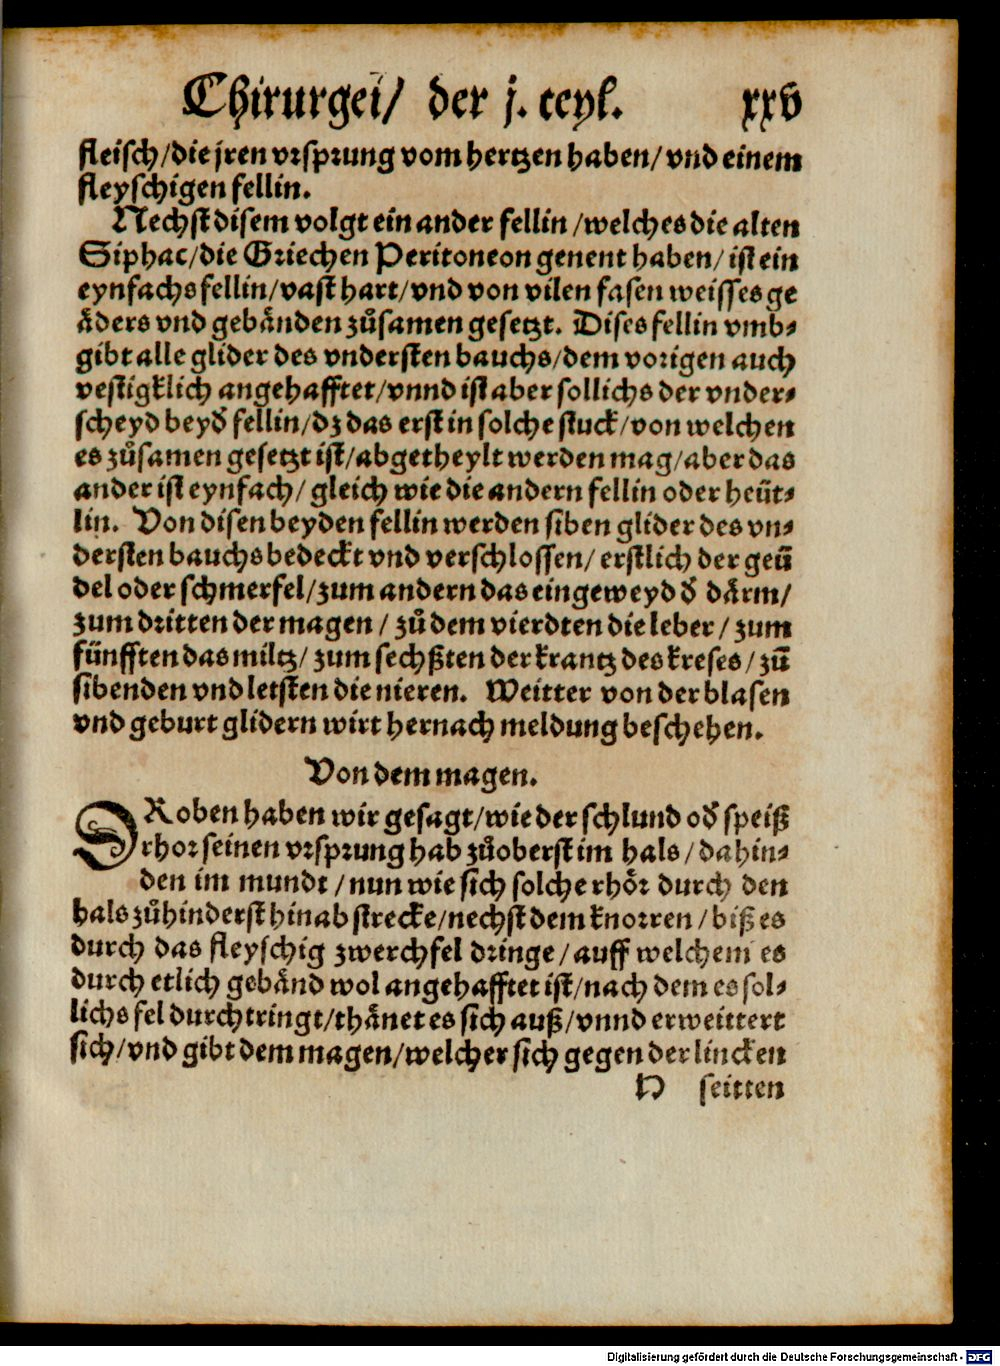 Chirurgei/ der j. teyl. xxv
fleisch/die jren vrsprung vom hertzen haben/vnd einem
fleyschigen fellin.
Nechst disem volgt ein ander fellin/welches die alten
Siphac/die Griechen Peritoneon genent haben/ist ein
eynfachs fellin/vast hart/vnd von vilen fasen weisses ge
äders vnd gebänden zůsamen gesetzt. Dises fellin vmb-
gibt alle glider des vndersten bauchs/dem vorigen auch
vestigklich angehafftet/vnnd ist aber sollichs der vnder-
scheyd beyd̕ fellin/dz das erst in solche stuck/von welchen
es zůsamen gesetzt ist/abgetheylt werden mag/aber das
ander ist eynfach/gleich wie die andern fellin oder heüt-
lin. Von disen beyden fellin werden siben glider des vn-
dersten bauchs bedeckt vnd verschlossen/erstlich der geü
del oder schmerfel/zum andern das eingeweyd d̕ därm/
zum dritten der magen/zů dem vierdten die leber/zum
fünfften das miltz/zum sechßten der krantz des kreses/zů
sibenden vnd letsten die nieren. Weitter von der blasen
vnd geburt glidern wirt hernach meldung beschehen.
Von dem magen.
DRoben haben wir gesagt/wie der schlund od̕ speiß
rhor seinen vrsprung hab zůoberst im hals/dahin-
den im mundt/nun wie sich solche rhör durch den
hals zůhinderst hinab strecke/nechst dem knorren/biß es
durch das fleyschig zwerchfel dringe/auff welchem es
durch etlich gebänd wol angehafftet ist/nach dem es sol-
lichs fel durchtringt/thänet es sich auß/vnnd erweittert
sich/vnd gibt dem magen/welcher sich gegen der lincken
seitten
Digitalisierung gefördert durch die Deutsche Forschungsgemeinschaft - DFG